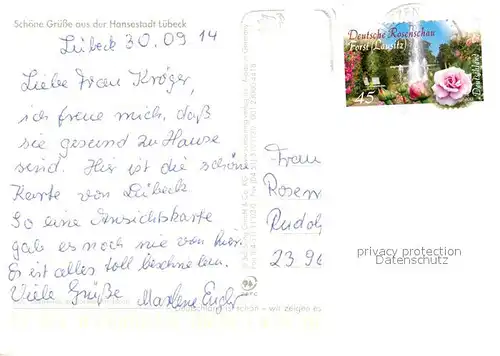 Schöne Grüße aus der Hansestadt Lübeck
Lübeck 30.09 14
Liebe Frau Kröger,
ich freue mich, daß
sie gesund zu Hause
sind. Hier ist die schöne
Karte von Lübeck
So eine Ansichtskarte
gab es noch nie von hier.
Es ist alles toll beschrieben.
Viele Grüße Marlene
Deutsche Rosenschau
Forst (Lausitz)
Deutschland
45
Frau
Rosen
Rudolf
23 9
privacy protection
Datenschutz
Deutschland ist schön – wir zeigen es